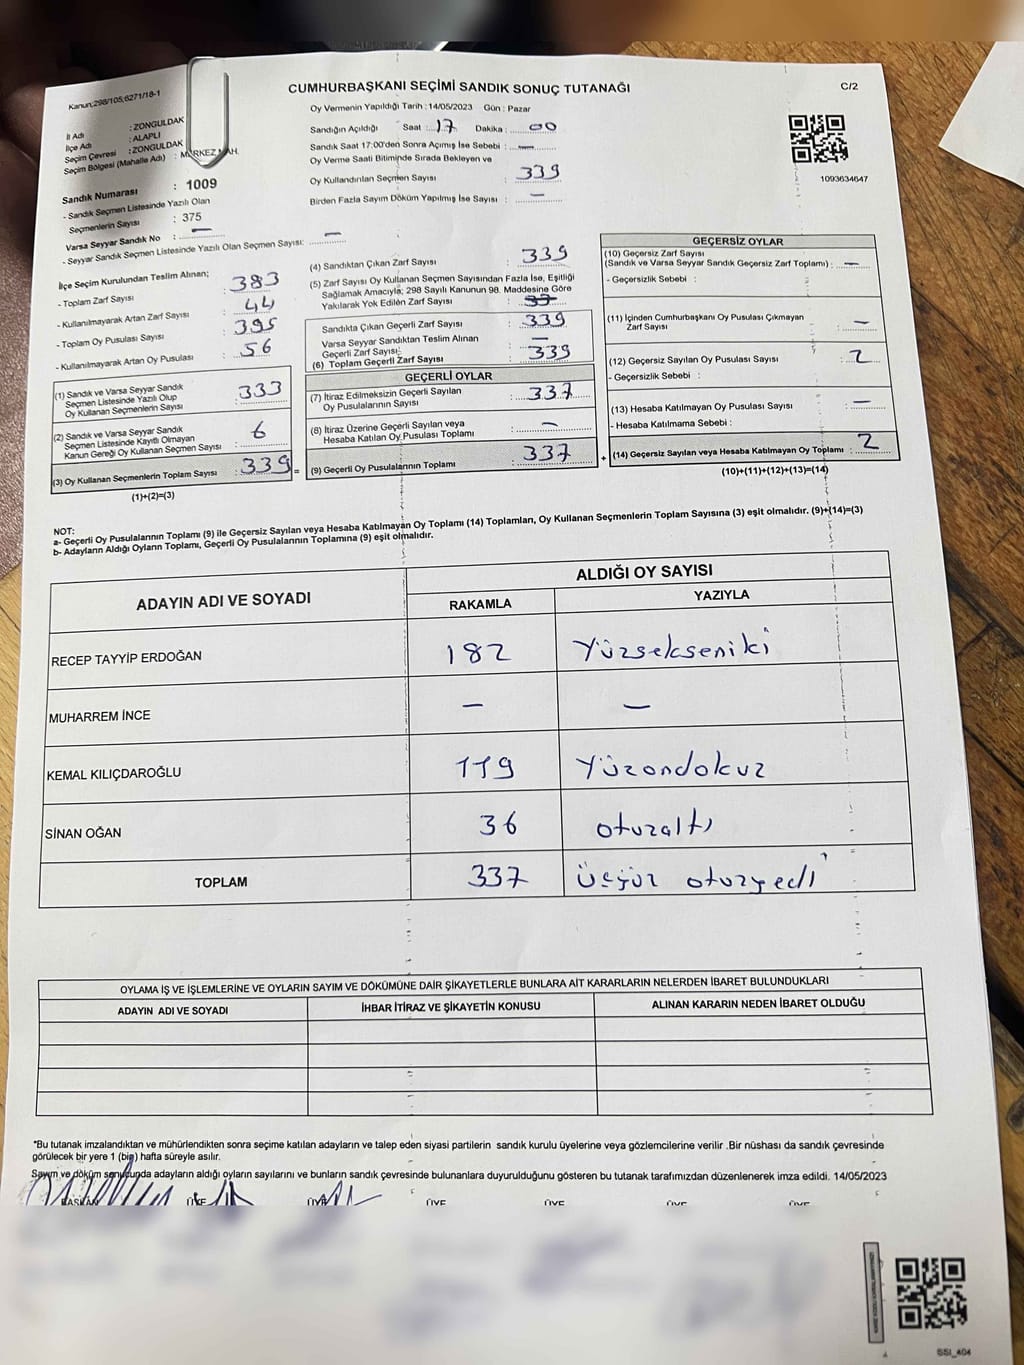 CUMHURBAŞKANI SEÇİMİ SANDIK SONUÇ TUTANAĞI
C/2
Kanun;298/105;6271/18-1
Oy Vermenin Yapıldığı Tarih : 14/05/2023 Gün : Pazar
İl Adı : ZONGULDAK
İlçe Adı : ALAPLI
Seçim Çevresi : ZONGULDAK
Seçim Bölgesi (Mahalle Adı) : MERKEZ MAH.
Sandık Numarası : 1009
- Sandık Seçmen Listesinde Yazılı Olan
Seçmenlerin Sayısı : 375
Varsa Seyyar Sandık No : —
- Seyyar Sandık Seçmen Listesinde Yazılı Olan Seçmen Sayısı: —
Sandığın Açıldığı Saat : 17 Dakika : 00
Sandık Saat 17:00'den Sonra Açımış İse Sebebi : —
Oy Verme Saati Bitiminde Sırada Bekleyen ve
Oy Kullandırılan Seçmen Sayısı : 339
Birden Fazla Sayım Döküm Yapılmış İse Sayısı : —
1093634647
İlçe Seçim Kurulundan Teslim Alınan;
- Toplam Zarf Sayısı : 383
- Kullanılmayarak Artan Zarf Sayısı : 44
- Toplam Oy Pusulası Sayısı : 395
- Kullanılmayarak Artan Oy Pusulası : 56
(1) Sandık ve Varsa Seyyar Sandık
Seçmen Listesinde Yazılı Olup
Oy Kullanan Seçmenlerin Sayısı : 333
(2) Sandık ve Varsa Seyyar Sandık
Seçmen Listesinde Kayıtlı Olmayan
Kanun Gereği Oy Kullanan Seçmen Sayısı : 6
(3) Oy Kullanan Seçmenlerin Toplam Sayısı : 339 =
(1)+(2)=(3)
(4) Sandıktan Çıkan Zarf Sayısı : 339
(5) Zarf Sayısı Oy Kullanan Seçmen Sayısından Fazla İse, Eşitliği
Sağlamak Amacıyla; 298 Sayılı Kanunun 98. Maddesine Göre
Yakılarak Yok Edilen Zarf Sayısı :
Sandıkta Çıkan Geçerli Zarf Sayısı : 339
Varsa Seyyar Sandıktan Teslim Alınan
Geçerli Zarf Sayısı: —
(6) Toplam Geçerli Zarf Sayısı : 339
GEÇERLİ OYLAR
(7) İtiraz Edilmeksizin Geçerli Sayılan
Oy Pusulalarının Sayısı : 337
(8) İtiraz Üzerine Geçerli Sayılan veya
Hesaba Katılan Oy Pusulası Toplamı : —
(9) Geçerli Oy Pusulalarının Toplamı : 337 +
GEÇERSİZ OYLAR
(10) Geçersiz Zarf Sayısı
(Sandık ve Varsa Seyyar Sandık Geçersiz Zarf Toplamı) : —
- Geçersizlik Sebebi :
(11) İçinden Cumhurbaşkanı Oy Pusulası Çıkmayan
Zarf Sayısı : —
(12) Geçersiz Sayılan Oy Pusulası Sayısı : 2
- Geçersizlik Sebebi :
(13) Hesaba Katılmayan Oy Pusulası Sayısı : —
- Hesaba Katılmama Sebebi :
(14) Geçersiz Sayılan veya Hesaba Katılmayan Oy Toplamı : 2
(10)+(11)+(12)+(13)=(14)
NOT:
a- Geçerli Oy Pusulalarının Toplamı (9) ile Geçersiz Sayılan veya Hesaba Katılmayan Oy Toplamı (14) Toplamları, Oy Kullanan Seçmenlerin Toplam Sayısına (3) eşit olmalıdır. (9)+(14)=(3)
b- Adayların Aldığı Oyların Toplamı, Geçerli Oy Pusulalarının Toplamına (9) eşit olmalıdır.
ADAYIN ADI VE SOYADI
ALDIĞI OY SAYISI
RAKAMLA YAZIYLA
RECEP TAYYİP ERDOĞAN 182 Yüzsekseniki
MUHARREM İNCE — —
KEMAL KILIÇDAROĞLU 119 Yüzondokuz
SİNAN OĞAN 36 otuzaltı
TOPLAM 337 Üçyüz otuzyedi
OYLAMA İŞ VE İŞLEMLERİNE VE OYLARIN SAYIM VE DÖKÜMÜNE DAİR ŞİKAYETLERLE BUNLARA AİT KARARLARIN NELERDEN İBARET BULUNDUKLARI
ADAYIN ADI VE SOYADI İHBAR İTİRAZ VE ŞİKAYETİN KONUSU ALINAN KARARIN NEDEN İBARET OLDUĞU
*Bu tutanak imzalandıktan ve mühürlendikten sonra seçime katılan adayların ve talep eden siyasi partilerin sandık kurulu üyelerine veya gözlemcilerine verilir .Bir nüshası da sandık çevresinde
görülecek bir yere 1 (bir) hafta süreyle asılır.
Sayım ve döküm sonucunda adayların aldığı oyların sayılarını ve bunların sandık çevresinde bulunanlara duyurulduğunu gösteren bu tutanak tarafımızdan düzenlenerek imza edildi. 14/05/2023
BAŞKAN ÜYE ÜYE ÜYE ÜYE ÜYE ÜYE
SSI_404